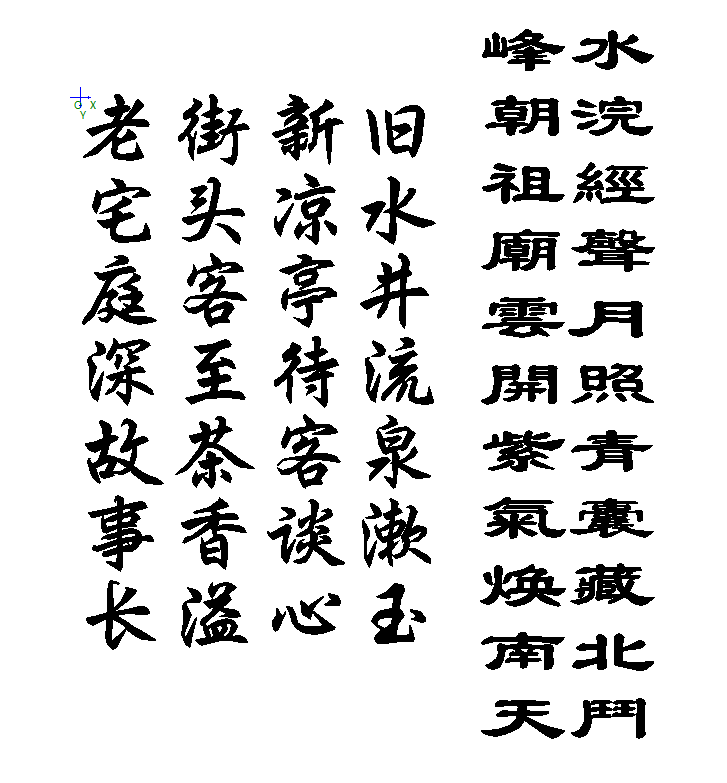 水浣經聲月照青囊藏北鬥
峰朝祖廟雲開紫氣煥南天
旧水井流泉漱玉
新凉亭待客谈心
街头客至茶香溢
老宅庭深故事长
X
Y